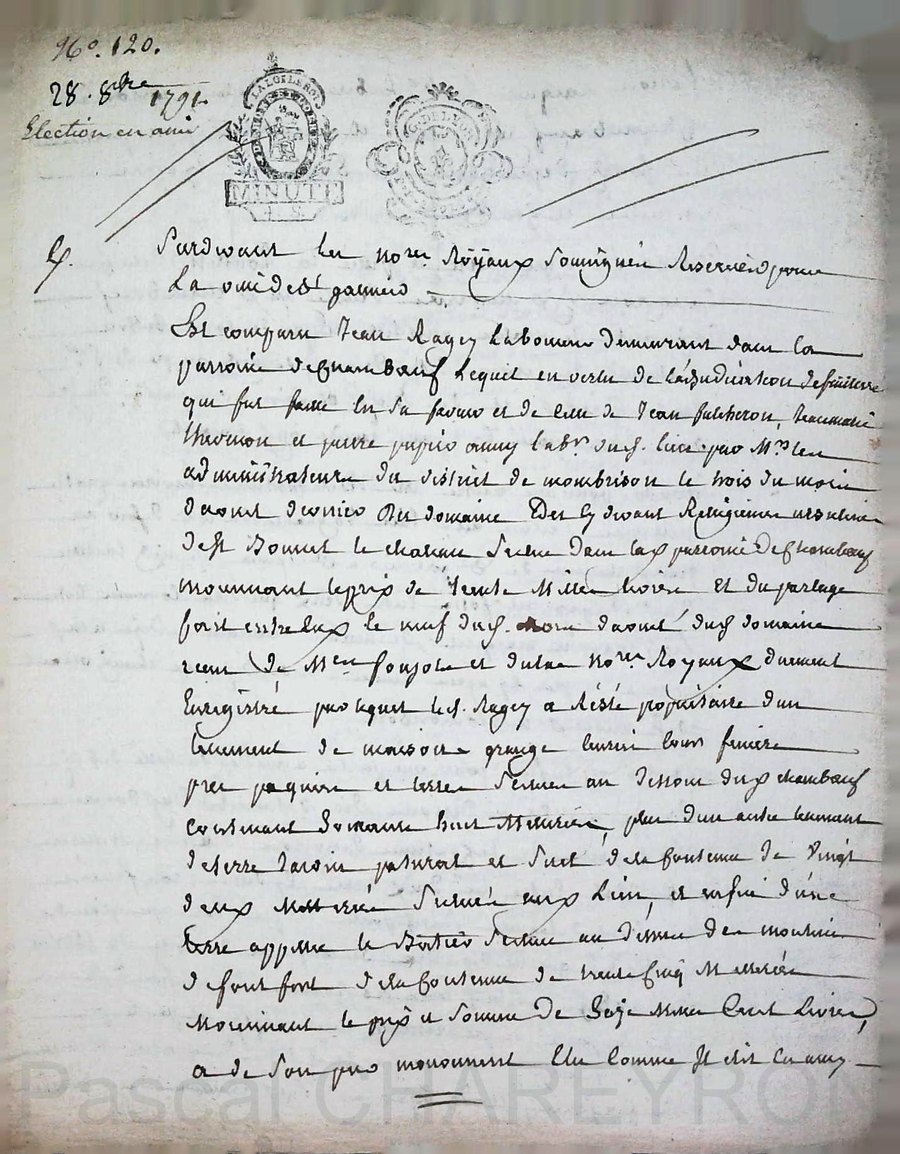 No. 120.
28. 8bre 1791.
Election en ami
LA LOI LE ROI
MINUTE
4. S.
Pardevant les nores Royaux Soussignés Reservés pour
La ville de St galmier
Est comparu Jean Ragey Laboureur demeurant dans la
paroisse de Chambœuf Lequel en vertu de l'adjudication definitive
qui fut faite en sa faveur et de celle de Jean fulcheron, Jeanmarie
thevenon et pierre aussy labrs dud. lieu par Mrs les
administrateurs du district de monbrison le trois du mois
daoust dernier Du domaine Des cydevant Religieuses ursulines
de St Bonnet le chateau Scitué dans lad parroisse De Chambœuf
moyennant le prix de trente Mille livres Et du partage
fait entre Eux le neuf dud. mois daoust dud domaine
recu de Me et dulac Nores Royaux duement
Enregistré par lequel led. Ragey a Resté propriétaire d'un
tenement de maison grange Ecurie Cour
pres paquier et terres Scitué au dessous dud chambœuf
Contenant Soixante huit Meterées, plus d'un autre tenement
de terre Jardin paturat et Suel de la Contenue de Vingt
deux Metterée Scitués aux Lieu, et enfin d'une
terre appellée le Scituée au dessus des moulins
de fontfort de la Contenue de trente Cinq Metterées
Moyennant le prix et Somme de Seize Mille Cent Livres,
a de Son pur mouvement Elu Comme Il Elit En amy
Pascal CHAREYRON